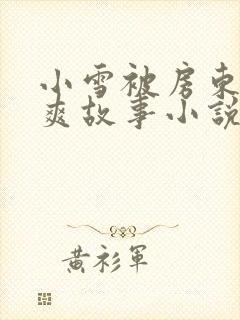 小雪被房东
爽故事小說
黃衫軍